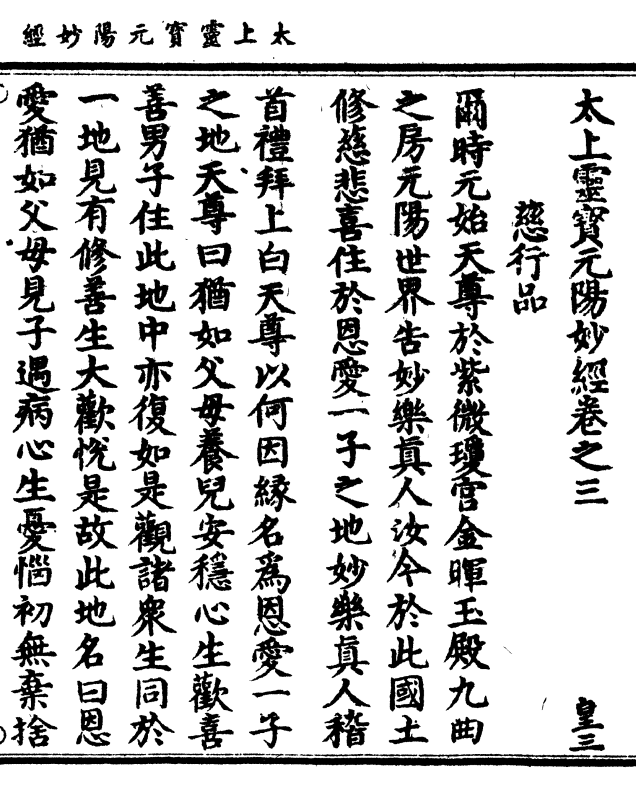 太上靈寳元陽妙經
太上靈寳元陽妙經卷之三
皇三
慈行品
爾時元始天尊於紫微瓊宫金暉玉殿九曲
之房元陽世界告妙樂眞人汝今於此國土
修慈悲喜住於恩愛一子之地妙樂眞人稽
首禮拜上白天尊以何因緣名爲恩愛一子
之地天尊曰猶如父母養兒安穩心生歡喜
善男子住此地中亦復如是觀諸衆生同於
一地見有修善生大歡悅是故此地名曰恩
愛猶如父母見子遇病心生憂惱初無棄捨